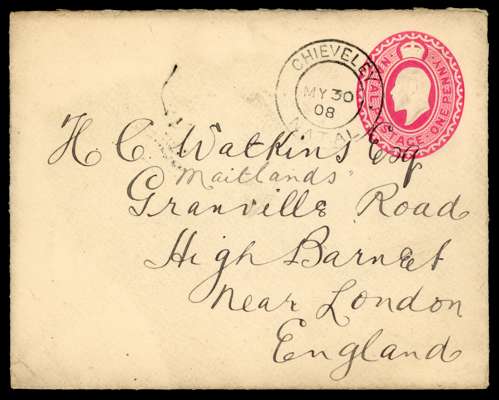 CHIEVELEY
MY 30
08
NATAL
NATAL POSTAGE ONE PENNY
H C Watkins Esq
Maitlands
Granville Road
High Barnet
Near London
England